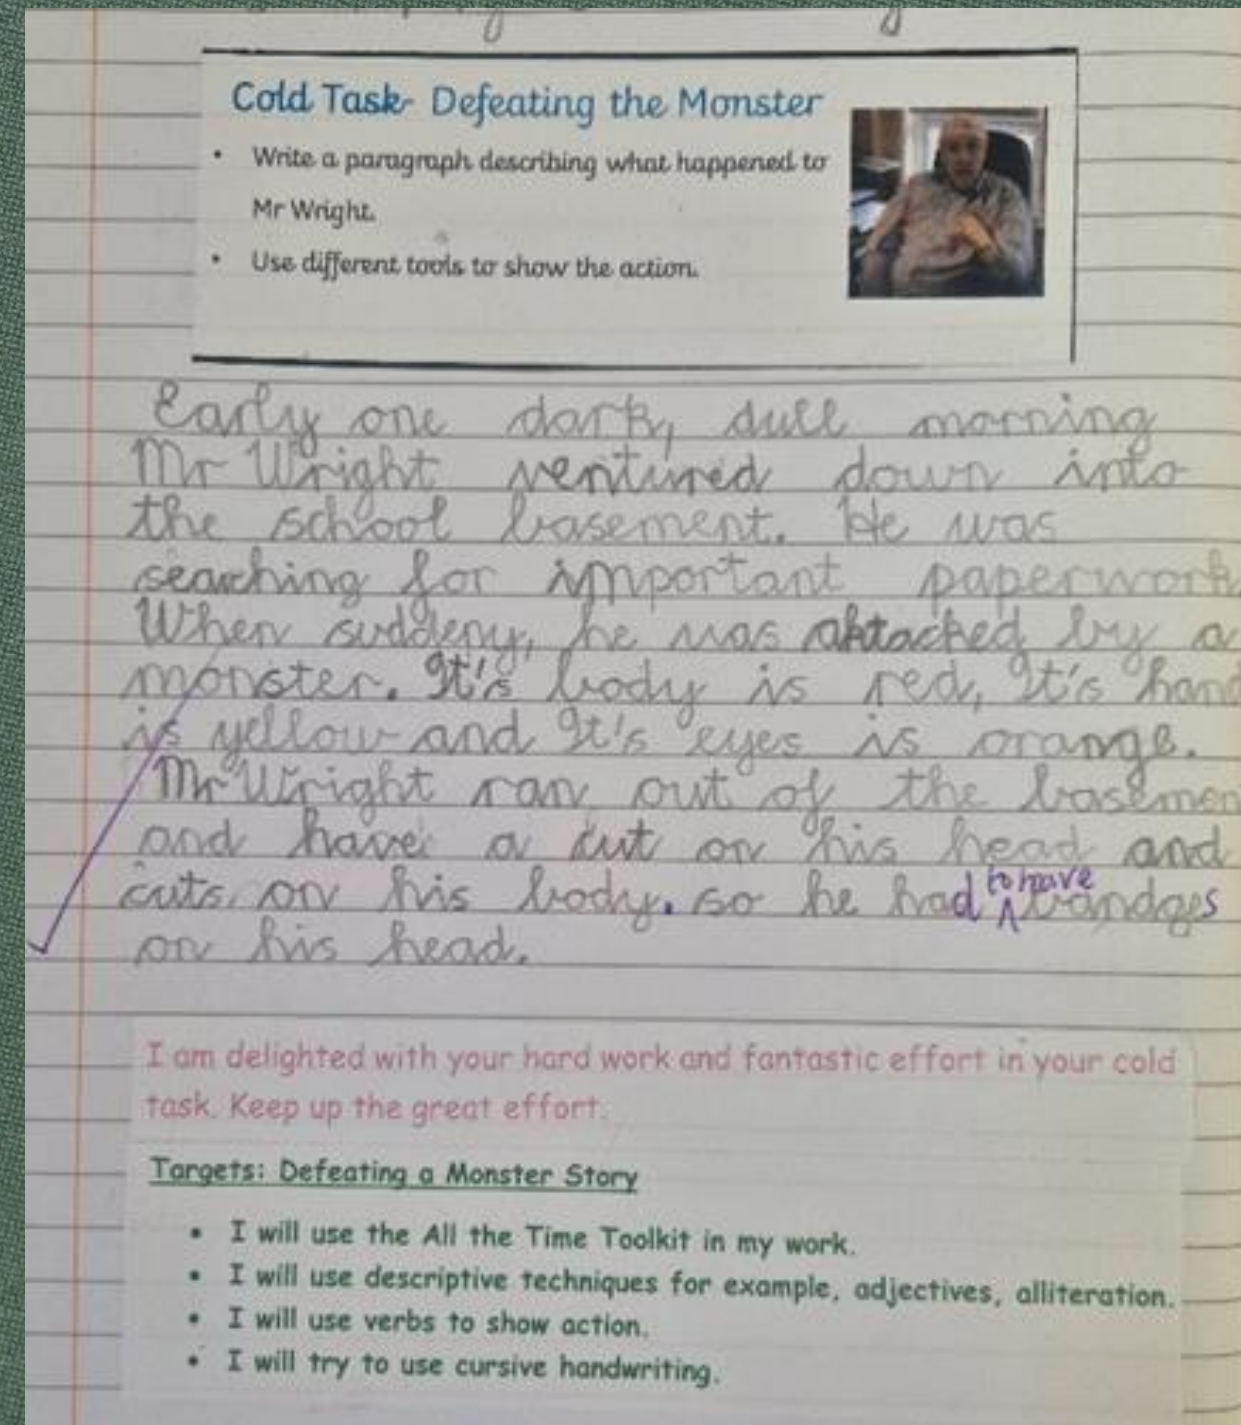 Cold Task- Defeating the Monster
• Write a paragraph describing what happened to
Mr Wright.
• Use different tools to show the action.
Early one dark, dull morning
Mr Wright ventured down into
the school basement. He was
searching for important paperwork
When suddeny, he was aktacked by a
monster. It's body is red, It's hand
is yellow and It's eyes is orange.
Mr Wright ran out of the basemen
and have a cut on his head and
cuts on his body. so he had to have bandges
on his head.
I am delighted with your hard work and fantastic effort in your cold
task. Keep up the great effort.
Targets: Defeating a Monster Story
• I will use the All the Time Toolkit in my work.
• I will use descriptive techniques for example, adjectives, alliteration.
• I will use verbs to show action.
• I will try to use cursive handwriting.